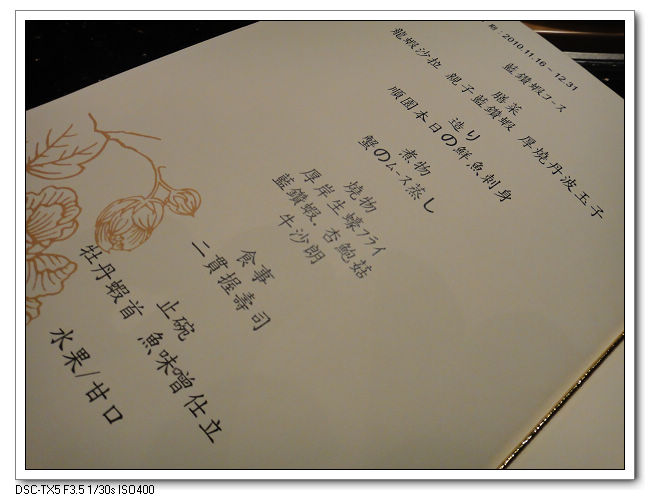 期：2010.11.16 – 12.31
藍鑽蝦コース
膳菜
龍蝦沙拉 親子藍鑽蝦 厚燒丹波玉子
造り
順園本日の鮮魚刺身
煮物
蟹のムース蒸し
燒物
厚岸生蠔フライ
藍鑽蝦．杏鮑菇
牛沙朗
食事
二貫握壽司
止碗
牡丹蝦首 魚味噌仕立
水果/甘口
DSC-TX5 F3.5 1/30s ISO400